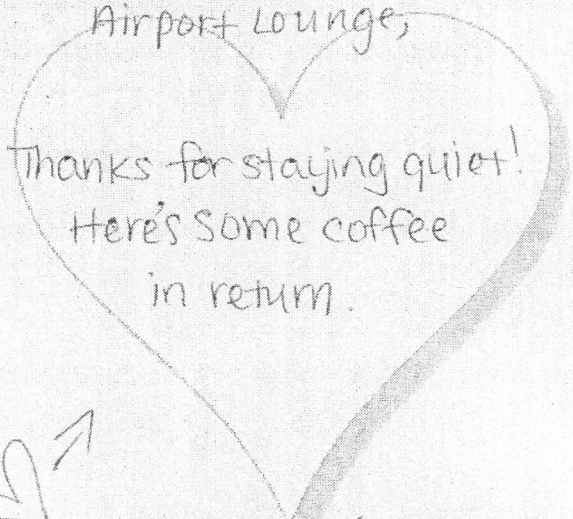 Airport Lounge,
Thanks for staying quiet!
Here's some coffee
in return.